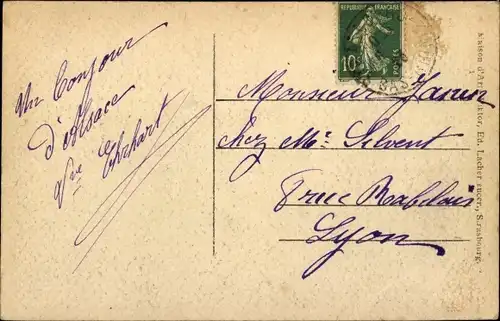 Un Bonjour
d'Alsace
Vve Ehrhart
RÉPUBLIQUE FRANÇAISE
10c
POSTES
BAS
Monsieur
chez Mr Silvent
7 rue Rabelais
Lyon
Maison d'Art Ed. Lacher succr, Strasbourg